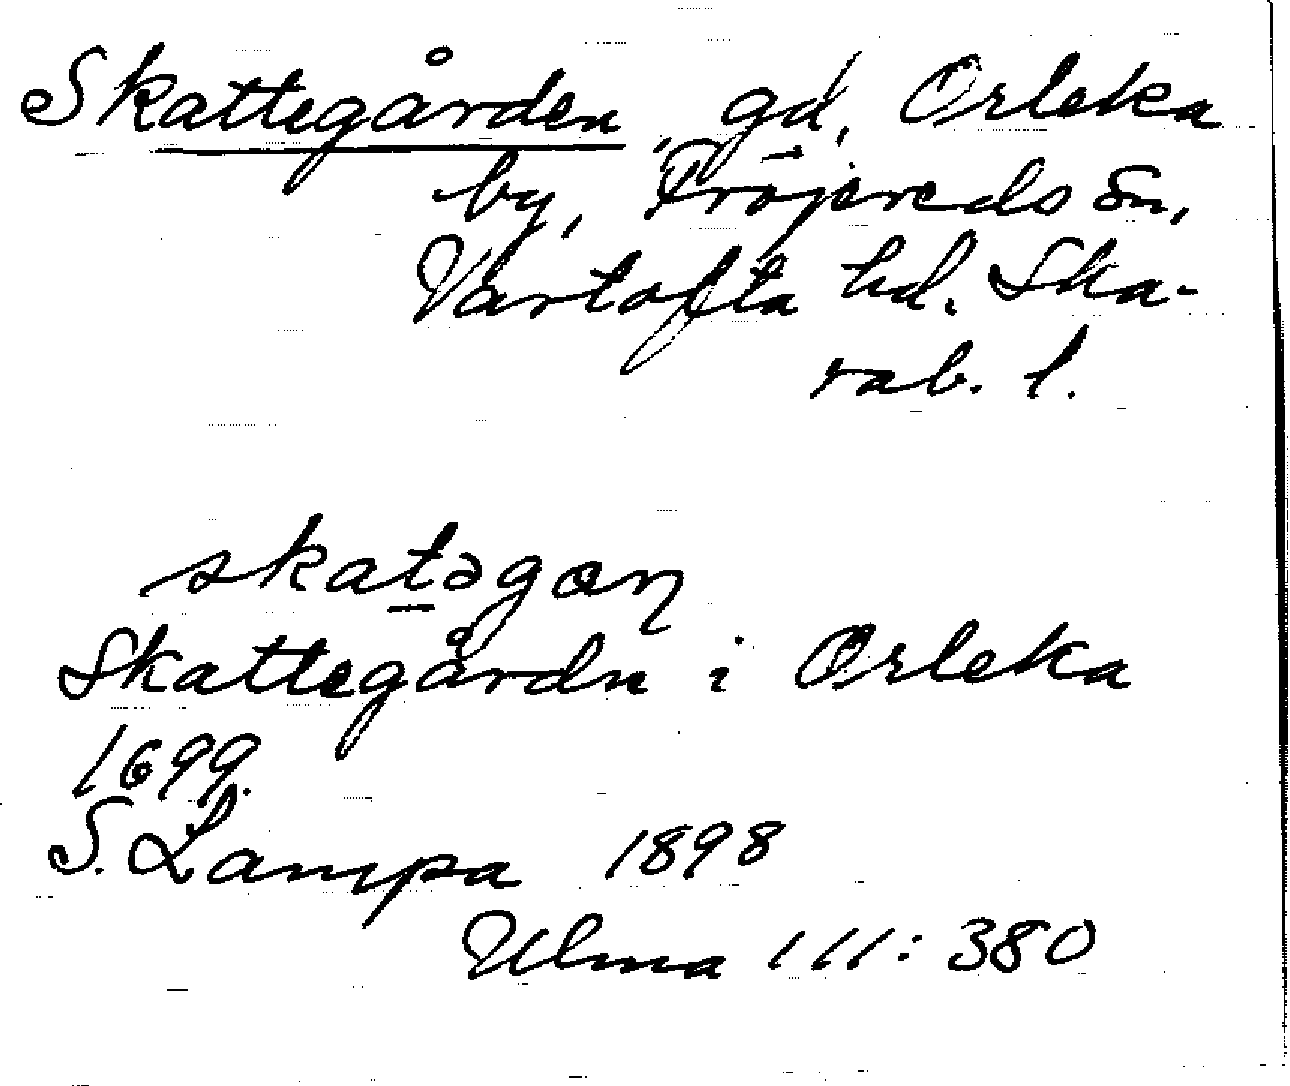 Skattegården, gd, Orleka
by, Fröjereds sn,
Vartofta hd. Ska-
rab. l.
skat̲əgɑɳ
Skattegårdn i Orleka
1699.
S. Lampa 1898
Ulma 111:380